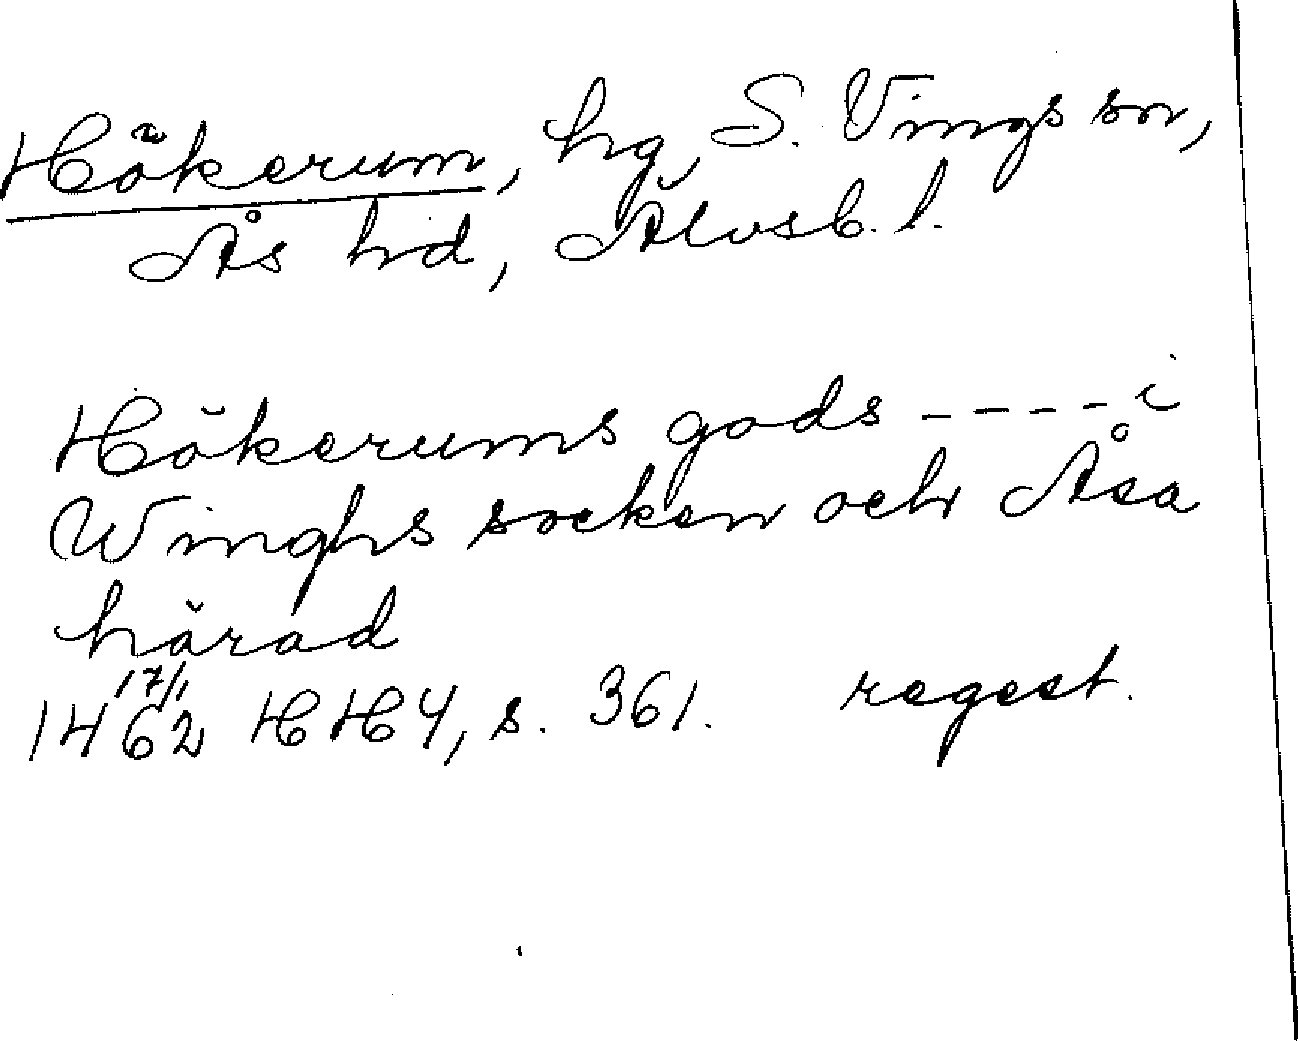 Hökerum, hg, S. Vings sn,
Ås hd, Älvsb. l.
Hökerums gods ----- i
Winghs socken och Åsa
härad
17/1
1462 HH4, s. 361. regest.